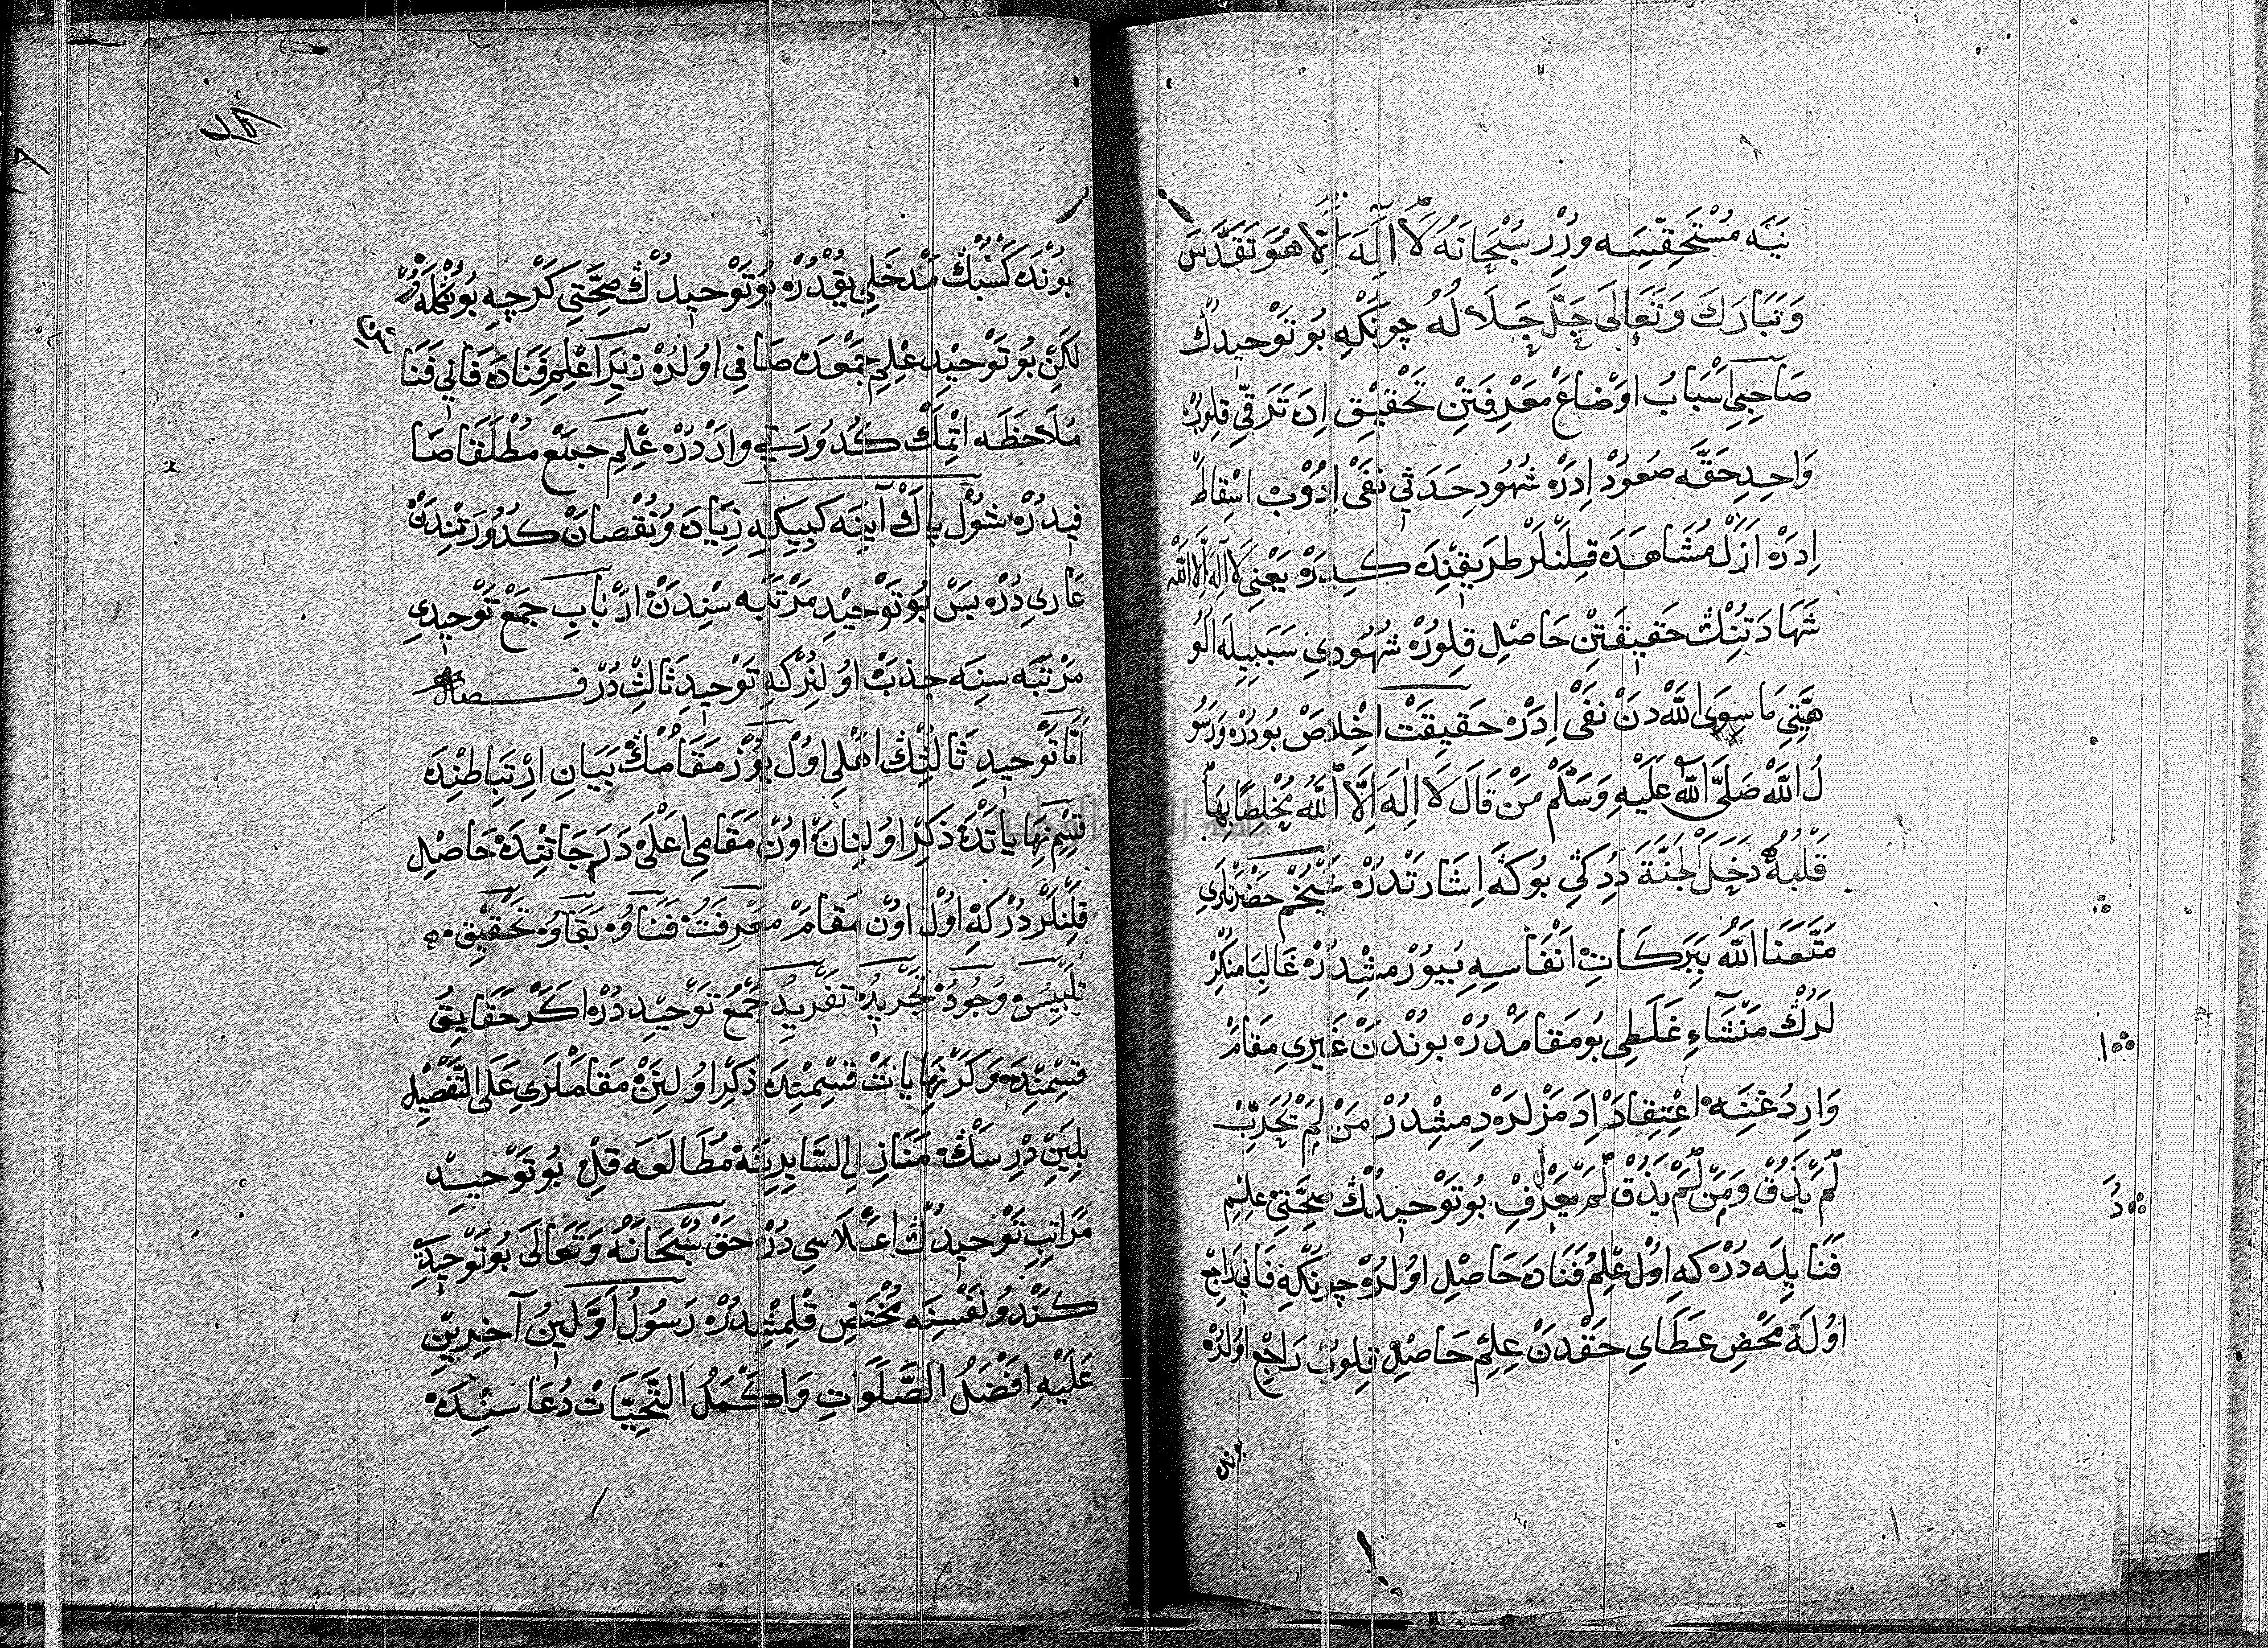 نِيَّه مُسْتَحِقِّيسَه وِرُرْ سُبْحَانَهُ لَآ اِلٰهَ اِلَّا هُوَ تَقَدَّسَ
وَتَبَارَكَ وَتَعَالَى جَلَّ جَلَالُهُ چُونَكِهِ بُو تَوْحِيدُكْ
صَاحِبِي اَسْبَابُ اَوْضَاعْ مَعْرِفَتِنْ تَحْقِيقِ اِدَ تَرَقِّي قِلُورْ
وَاحِدِ حَقَّه صُعُودْ اِدَرْ شُهُودِ حَدَثِي نَفَيْ اِدُوبْ اسْقِاطْ
اِدَرْ اَزَلْ مُشَاهَدَه قِلَنْلَرْ طَرِيقِنْدَه كِدَرْ يَعْنِي لَا اِلٰهَ اِلَّا اللّٰه
شَهَادَتِنُكْ حَقِيقَتِنْ حَاصِلِ قِلُورْ شُهُودِي سَبَبِيلَه اَلُو
هِيَّتِي مَا سِوَى اللّٰه دَنْ نَفَيْ اِدَرْ حَقِيقَتْ اِخْلَاصْ بُودُرْ وَرَسُو
لُ اللّٰه صَلَّى اللّٰه عَلَيْهِ وَسَلَّمْ مَنْ قَالَ لَا اِلٰهَ اِلَّا اللّٰهُ مُخْلِصًا بِهَا
قَلْبُهُ دَخَلَ الْجَنَّةَ دِدِكِي بُوكَه اِشَارَتْدُرْ شَيْخُمْ حَضْرَتْلَرِي
مَتَّعَنَا اللّٰهُ بِبَرَكَاتِ اَنْفَاسِهِ بُيُورْمِشْدُرْ غَالِبَا مُنْكِرْ
لَرُكْ مَنْشَاءِ غَلَطِي بُو مَقَامْدُرْ بُونْدَنْ غَيْرِي مَقَامْ
وَارِدُغِنَه اِعْتِقَادْ اِدَمَزْلَرْ دِمِشْدُرْ مَنْ لَمْ يُجَرِّبْ
لَمْ يَذُقْ وَمَنْ لَمْ يَذُقْ لَمْ يَعْرِفْ بُو تَوْحِيدُكْ صِحَّتِي عِلْمِ
فَنَا يِلَه دُرْ كَه اُولْ عِلْمُ فَنَادَه حَاصِلِ اُولُرْ چُونَكِهِ فَانِي رَاجِعْ
اُولَه مَحْضِ عَطَايِ حَقْدَنْ عِلْمِ حَاصِلْ قِلُوبْ رَاجِعْ اُولُرْ
بوندہ
بُونْدَه كَسْبُكْ مَدْخَلِي يُقْدُرْ بُو تَوْحِيدُكْ صِحَّتِي كَرْچِه بُو
لَكِنْ بُو تَوْحِيدِ عِلْمِ جَمْعْدَه صَافِي اُولُرْ زِيرَا عِلْمِ فَنَادَه فَانِي فَنَا
مُلَاحَظَه اِتْمَكْ كُدُورَتِي وَارْدُرْ عِلْمِ جَمْعْ مُطْلَقَا صَا
فِيدُرْ شُولْ پَاكْ آيِنَه كِيبِيكِه زِيَادَ وُ نُقْصَانْ كُدُورَتِنْدَنْ
عَارِي دُرْ بَسْ بُو تَوْحِيدِ مَرْتَبَه سِنْدَنْ اَرْبَابِ جَمْعْ تَوْحِيدِي
مَرْتَبَه سِنَه جَذْبْ اُولُنُرْ كِه تَوْحِيدِ ثَالِثْدُرْ فصل
اَمَّا تَوْحِيدِ ثَالِثُكْ اَهْلِي اُولْ يُوزْ مَقَامُكْ بَيَانِ اِرْتِبَاطِنْدَه
قِسْمِ نِهَايَاتْدَه ذِكْرْ اُولُنَانْ اُونْ مَقَامِي اَعْلَى دَرَجَاتِنْدَه حَاصِلِ
قِلَنْلَرْدُرْ كِه اُولْ اُونْ مَقَامْ مَعْرِفَتْ فَنَاوُ بَقَاوُ تَحْقِيقْ
تَلْبِيسْ وُجُودْ تَجْرِيدْ تَفْرِيدْ جَمْعْ تَوْحِيدْدُرْ اَكَرْ حَقَايِقُ
قِسْمِنْدَه وَكَرْ نِهَايَاتْ قِسْمِنْدَه ذِكْرْ اُولُنَنْ مَقَامْلَرِي عَلَى التَّفْصِيلْ
بِلَيِنْ دِرْسَكْ مَنَازِلِ السَّايِرِينَه مُطَالَعَه قِلْ بُو تَوْحِيدْ
مَرَاتِبِ تَوْحِيدُكْ اَعْلَاسِي دُرْ حَقْ سُبْحَانَهُ وَتَعَالَى بُو تَوْحِيدِ
كَنْدُو نَفْسِنَه مُخْتَصْ قِلْمِشْدُرْ رَسُولُ اَوَّلِينُ آخِرِينْ
عَلَيْهِ اَفْضَلُ الصَّلَوَاتِ وَاَكْمَلُ التَّحِيَّاتْ دُعَا سِنْدَه